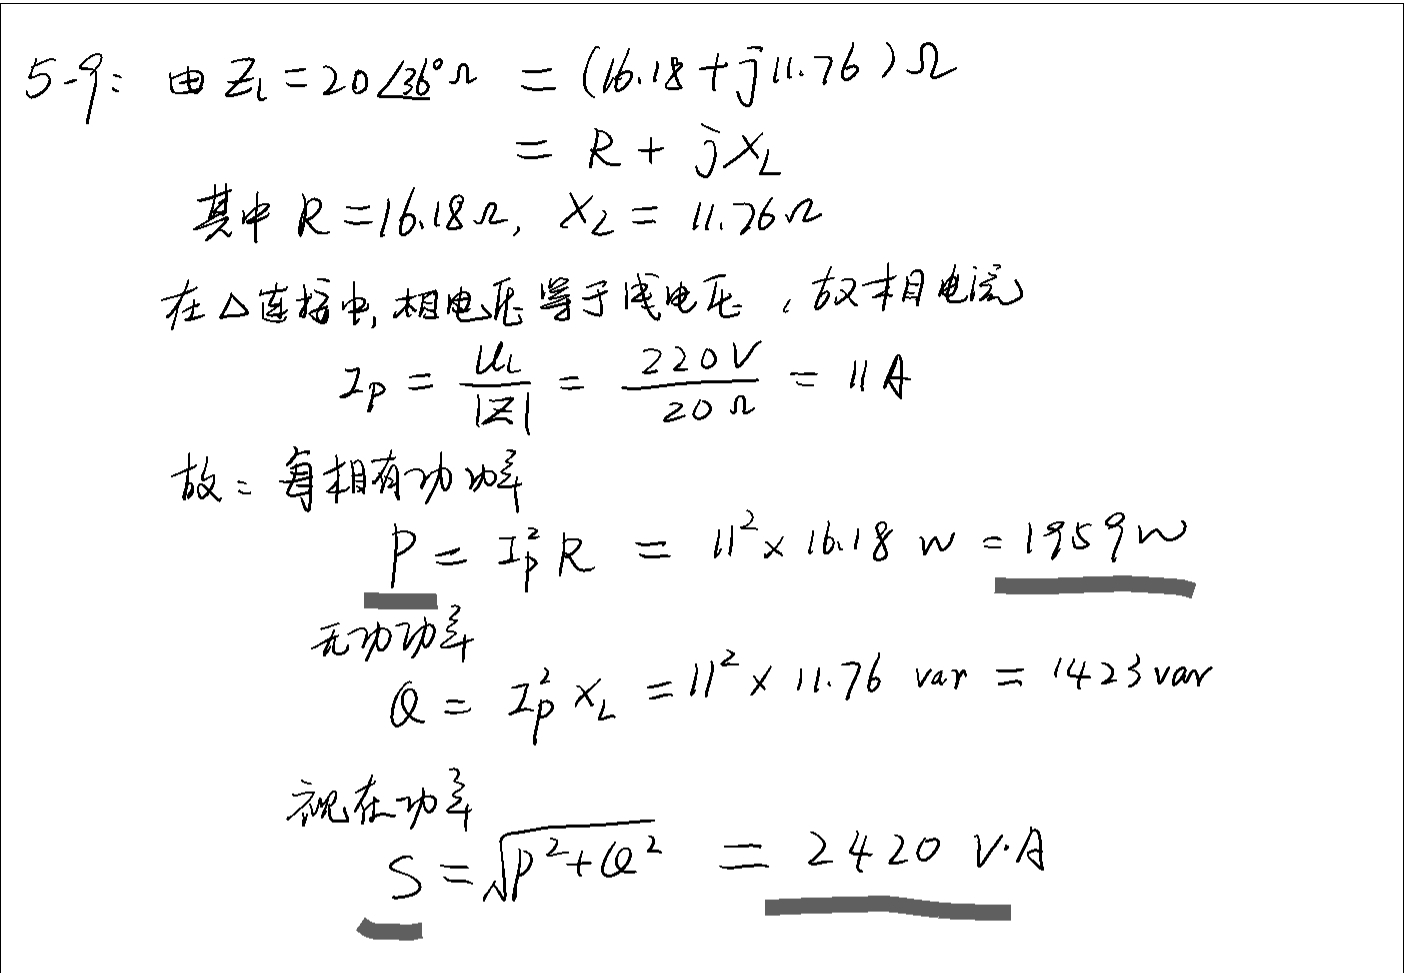 5-9: 由 Z_L = 20∠36° Ω = (16.18 + j11.76) Ω
= R + jX_L
其中 R = 16.18Ω, X_L = 11.76Ω
在△连接中, 相电压等于线电压, 故相电流
I_P = U_L / |Z| = 220V / 20Ω = 11A
故: 每相有功功率
P = I_P² R = 11² × 16.18 W = 1959W
无功功率
Q = I_P² X_L = 11² × 11.76 var = 1423 var
视在功率
S = √(P² + Q²) = 2420 V·A